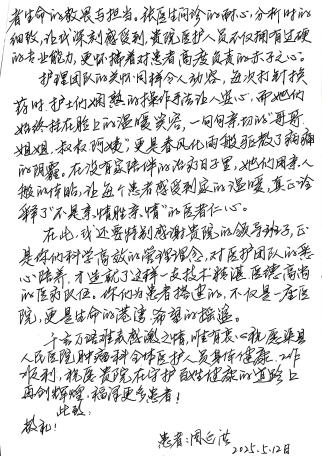 者生命的敬畏与担当。张医生问诊的耐心,分析时的
细致,让我深刻感受到,贵院医护人员不仅拥有过硬
的专业能力,更怀揣着对患者高度负责的赤子之心。
护理团队的关怀同样令人动容,每次打针换
药时护士们娴熟的操作手法让人安心,而她们
始终挂在脸上的温暖笑容,一句句亲切的“哥哥、
姐姐、叔叔阿姨”,更是春风化雨般驱散了病痛
的阴霾。在没有家陪伴的治疗日子里,她们用亲人
般的体贴,让每个患者感受到家的温暖,真正诠
释了“不是亲情胜亲情”的医者仁心。
在此,我还要特别感谢贵院的领导班子,正
是你们科学高效的管理理念,对医护团队的悉
心培养,才造就了这样一支技术精湛、医德高尚
的医疗队伍。你们为患者搭建的,不仅是一座医
院,更是生命的港湾、希望的
千言万语难表感激之情,唯有衷心祝愿渠县
人民医院肿瘤科全体医护人员身体健康、工作
顺利,祝愿贵院在守护百姓健康的道路上
再创辉煌,福泽更多患者!
此致
敬礼!
患者:周
2025.5.12日